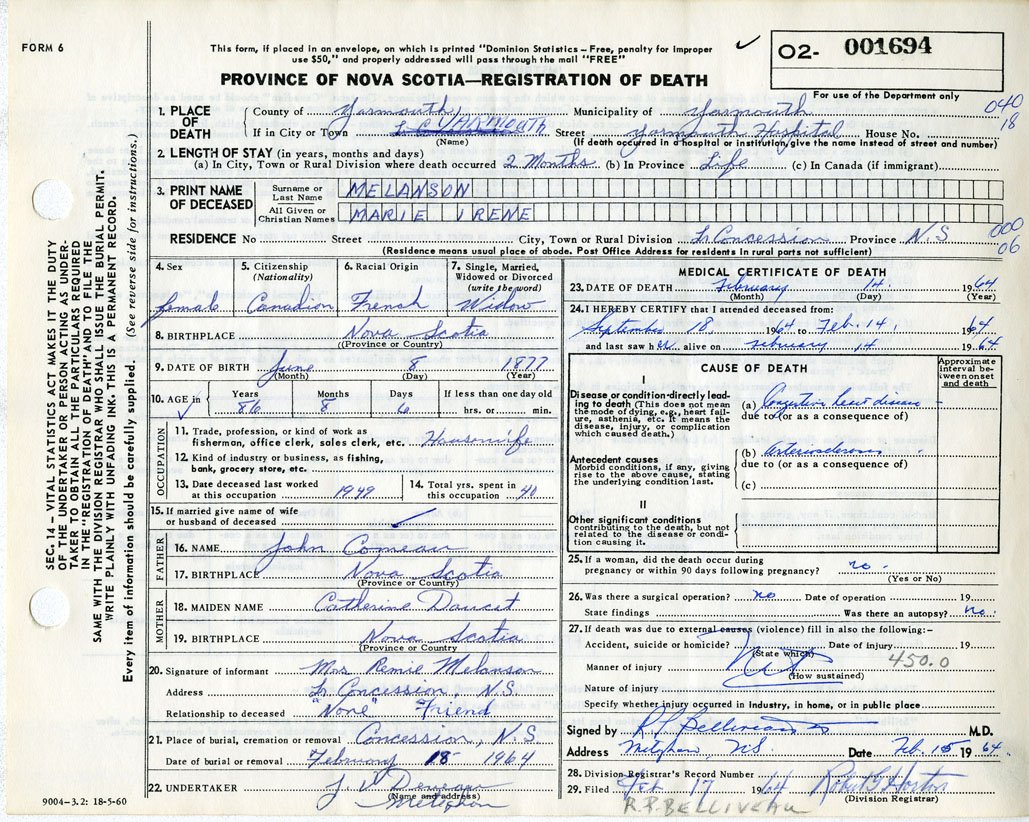 FORM 6
This form, if placed in an envelope, on which is printed "Dominion Statistics – Free, penalty for improper
use $50," and properly addressed will pass through the mail "FREE"
✓
O2- 001694
PROVINCE OF NOVA SCOTIA—REGISTRATION OF DEATH
For use of the Department only
1. PLACE OF DEATH County of Yarmouth Municipality of Yarmouth 040
If in City or Town YARMOUTH Street Yarmouth Hospital House No. 18
(Name) (If death occurred in a hospital or institution, give the name instead of street and number)
2. LENGTH OF STAY (in years, months and days)
(a) In City, Town or Rural Division where death occurred 2 Months (b) In Province Life (c) In Canada (if immigrant)
3. PRINT NAME OF DECEASED Surname or Last Name MELANSON
All Given or Christian Names MARIE IRENE
000
RESIDENCE No Street City, Town or Rural Division Lr Concession Province N.S 06
(Residence means usual place of abode. Post Office Address for residents in rural parts not sufficient)
4. Sex 5. Citizenship (Nationality) 6. Racial Origin 7. Single, Married, Widowed or Divorced (write the word)
female Canadian French Widow
8. BIRTHPLACE Nova Scotia
(Province or Country)
9. DATE OF BIRTH June 8 1877
(Month) (Day) (Year)
10. AGE in Years Months Days If less than one day old
✓ 86 8 6 hrs. or min.
OCCUPATION
11. Trade, profession, or kind of work as
fisherman, office clerk, sales clerk, etc. Housewife
12. Kind of industry or business, as fishing,
bank, grocery store, etc.
13. Date deceased last worked at this occupation 1949 14. Total yrs. spent in this occupation 40
15. If married give name of wife
or husband of deceased ✓
FATHER
16. NAME John Comeau
17. BIRTHPLACE Nova Scotia
(Province or Country)
MOTHER
18. MAIDEN NAME Catherine Doucet
19. BIRTHPLACE Nova Scotia
(Province or Country
20. Signature of informant Mrs Renie Melanson
Address Lr Concession, N.S.
Relationship to deceased "None" Friend
21. Place of burial, cremation or removal Concession, N.S
Date of burial or removal February 18 1964
22. UNDERTAKER J. V Deveau
(Name and address)
Meteghan
9004–3.2: 18-5-60
SEC. 14 – VITAL STATISTICS ACT MAKES IT THE DUTY
OF THE UNDERTAKER OR PERSON ACTING AS UNDER-
TAKER TO OBTAIN ALL THE PARTICULARS REQUIRED
IN THE "REGISTRATION OF DEATH" AND TO FILE THE
SAME WITH THE DIVISION REGISTRAR WHO SHALL ISSUE THE BURIAL PERMIT.
WRITE PLAINLY WITH UNFADING INK. THIS IS A PERMANENT RECORD.
Every item of information should be carefully supplied. (See reverse side for instructions.)
MEDICAL CERTIFICATE OF DEATH
23. DATE OF DEATH February 14. 1964
(Month) (Day) (Year)
24. I HEREBY CERTIFY that I attended deceased from:
September 18 1964 to Feb. 14. 1964
and last saw her alive on February 14 1964
CAUSE OF DEATH
Approximate interval between onset and death
I
Disease or condition directly leading to death (This does not mean the mode of dying, e.g., heart failure, asthenia, etc. It means the disease, injury, or complication which caused death.)
(a) Congestive heart disease
due to (or as a consequence of)
Antecedent causes
Morbid conditions, if any, giving rise to the above cause, stating the underlying condition last.
(b) arteriosclerosis
due to (or as a consequence of)
(c)
II
Other significant conditions
contributing to the death, but not related to the disease or condition causing it.
25. If a woman, did the death occur during
pregnancy or within 90 days following pregnancy? no.
(Yes or No)
26. Was there a surgical operation? no Date of operation 19
State findings Was there an autopsy? no.
27. If death was due to external causes (violence) fill in also the following:–
Accident, suicide or homicide? Date of injury 19
(State which) 450.0
Manner of injury Nil
(How sustained)
Nature of injury
Specify whether injury occurred in Industry, in home, or in public place
Signed by R. P. Belliveau M.D.
Address Meteghan, N.S. Date Feb. 15 1964.
28. Division Registrar's Record Number
29. Filed Feb 17 1964 Robert G Horton
(Division Registrar)
R.P. BELLIVEAU